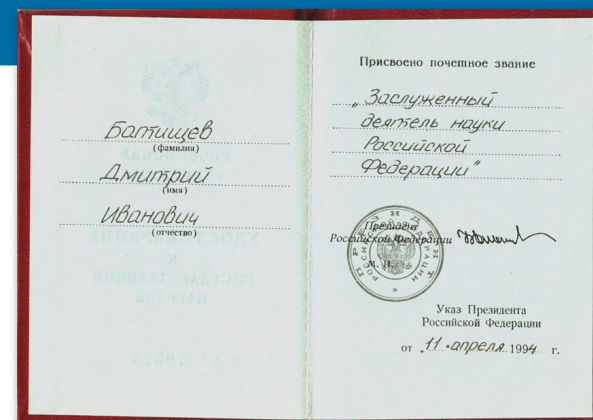 Батищев
(фамилия)
Дмитрий
(имя)
Иванович
(отчество)
Присвоено почетное звание
„Заслуженный
деятель науки
Российской
Федерации"
Президент
Российской Федерации
М. П.
Указ Президента
Российской Федерации
от „11" апреля 1994 г.